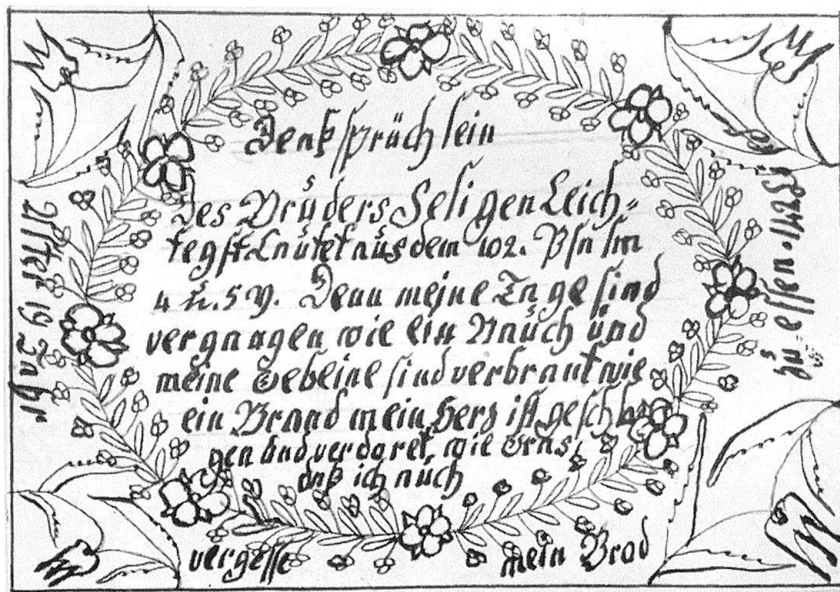 Denkſprüchlein
Des Bruders Seligen Leich=
tegſt Lautet aus dem 102. Pſalm
4 u. 5 V. Denn meine Tage ſind
vergangen wie ein Rauch und
meine Gebeine ſind verbrant wie
ein Brand mein Herz iſt geſchla
gen und verdoret, wie Gras,
daß ich auch
vergeſſe mein Brod
zu eſſen.
Alter 19 Jahr